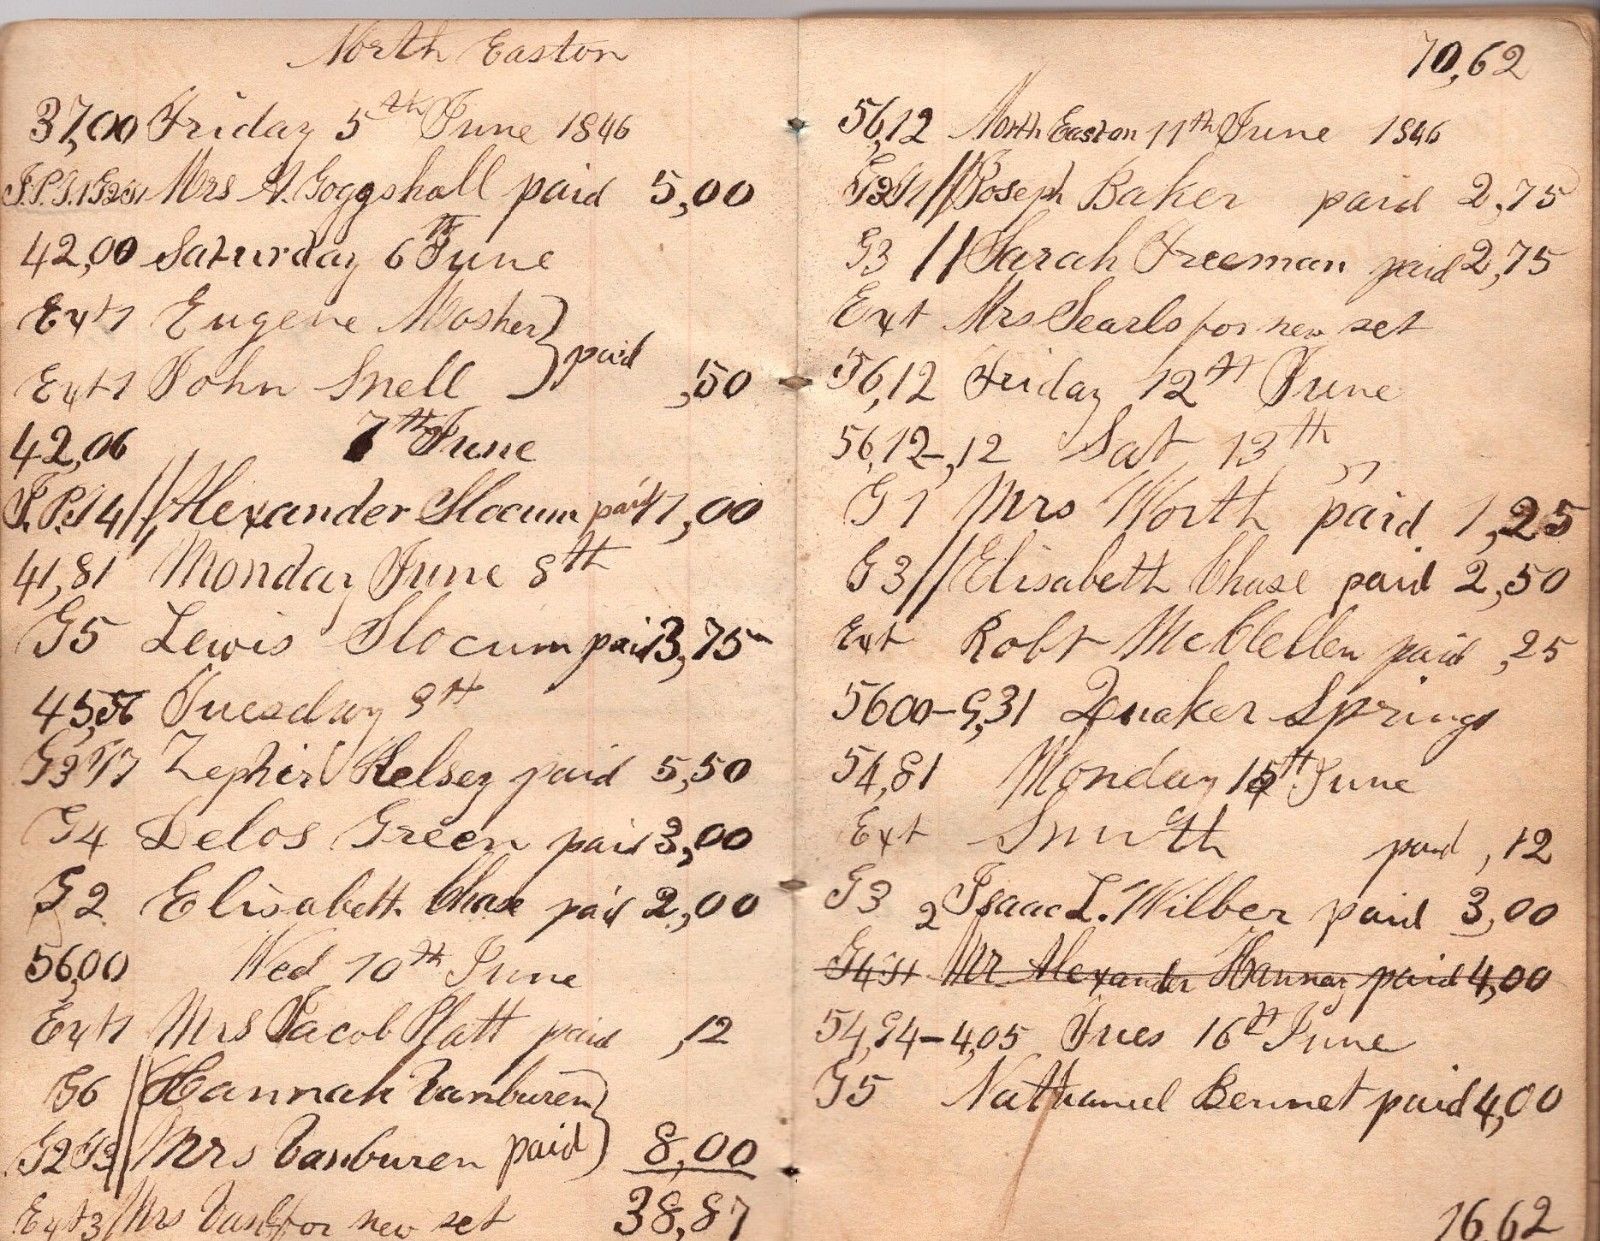 North Easton
37,00 Friday 5th June 1846
Mrs A. Goggshall paid 5,00
42,00 Saturday 6th June
Ext 1 Eugene Mosher } paid
Ext 1 John Snell ,50
42,06 7th June
Alexander Slocum paid 1,00
41,81 Monday June 8th
G5 Lewis Slocum paid 3,75
45,56 Tuesday 9th
Zephir Kelsey paid 5,50
G4 Delos Green paid 3,00
G2 Elisabeth Chase paid 2,00
56,00 Wed 10th June
Ext 1 Mrs Jacob Platt paid ,12
G6 // Hannah Vanburen }
G2 G3 // Mrs Vanburen paid } 8,00
Ext 3 / Mrs for new set 38,87
70,62
56,12 North Easton 11th June 1846
// Joseph Baker paid 2,75
G3 // Sarah Freeman paid 2,75
Ext Mrs Searls for new set
56,12 Friday 12th June
56,12-,12 Sat 13th
G1 Mrs Worth paid 1,25
G3 // Elisabeth Chase paid 2,50
Ext Robt McClellen paid ,25
5600-9,31 Quaker Springs
54,81 Monday 15th June
Ext Smith paid ,12
G3 2 Isaac L. Wilber paid 3,00
Mr Alexander Hannay paid 4,00
54,94-4,05 Tues 16th June
G5 Nathaniel Bennet paid 4,00
16,62